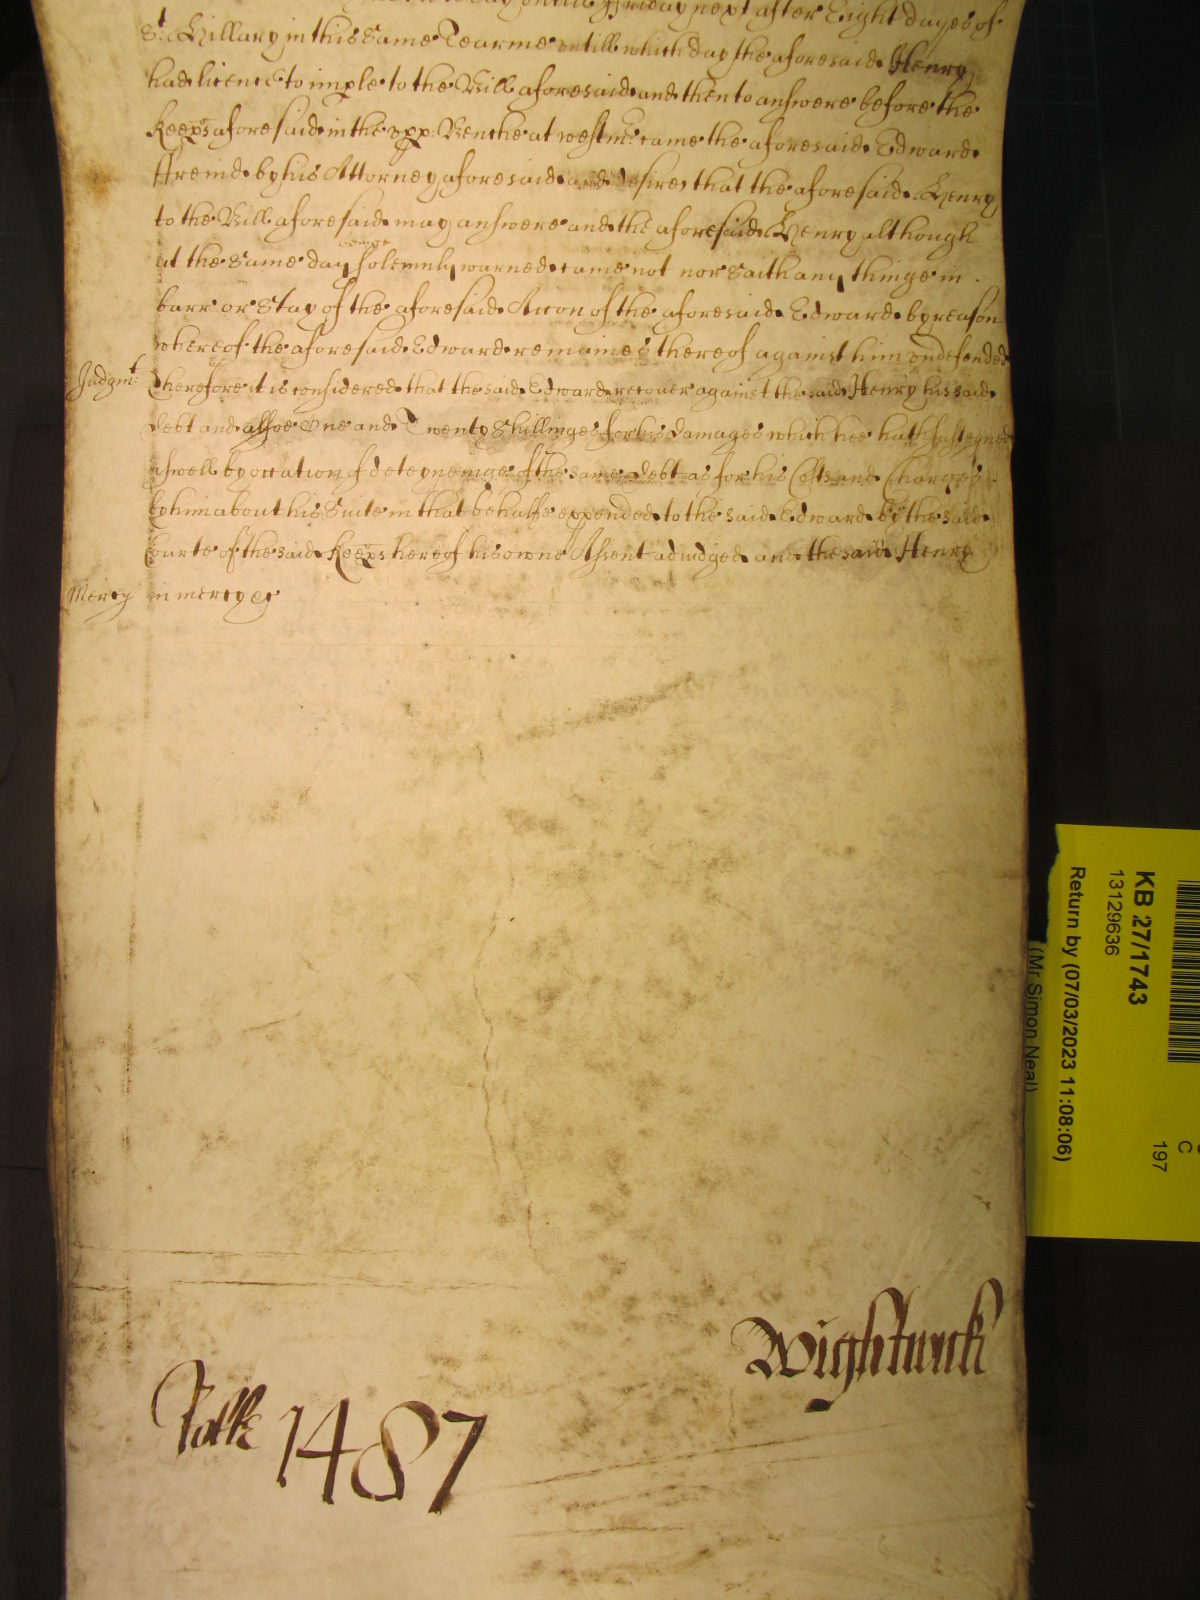 day on the ffriday next after Eight dayes of
St. Hillary in this Same Tearme untill which day the aforesaid Henry
had licence to imple to the Bill aforesaid and then to answere before the
Keeps aforesaid in the upp. Benche at westmr. came the aforesaid Edward
ffreind by his Attorney aforesaid and desires that the aforesaid Henry
to the Bill aforesaid may answere and the aforesaid Henry although
at the same day solemnly warned came not nor Saith any thinge in
barr or Stay of the aforesaid Accon of the aforesaid Edward by reason
whereof the aforesaid Edward remaines thereof against him undefended
Judgmt. Therefore it is considered that the said Edward recover against the said Henry his said
debt and alsoe One and Twenty Shillinges for his damages which hee hath susteyned
aswell by occation of deteyneinge of the same debt as for his Costs and Charges
by him about his Suite in that behalfe expended to the said Edward by the said
Courte of the said Keeps hereof his owne Assent adiudged and the said Henry
Mercy in mercy &c
Wightwick
Rolle 1487
KB 27/1743
13129636
Return by (07/03/2023 11:08:06)
(Mr Simon Neal)
C
197